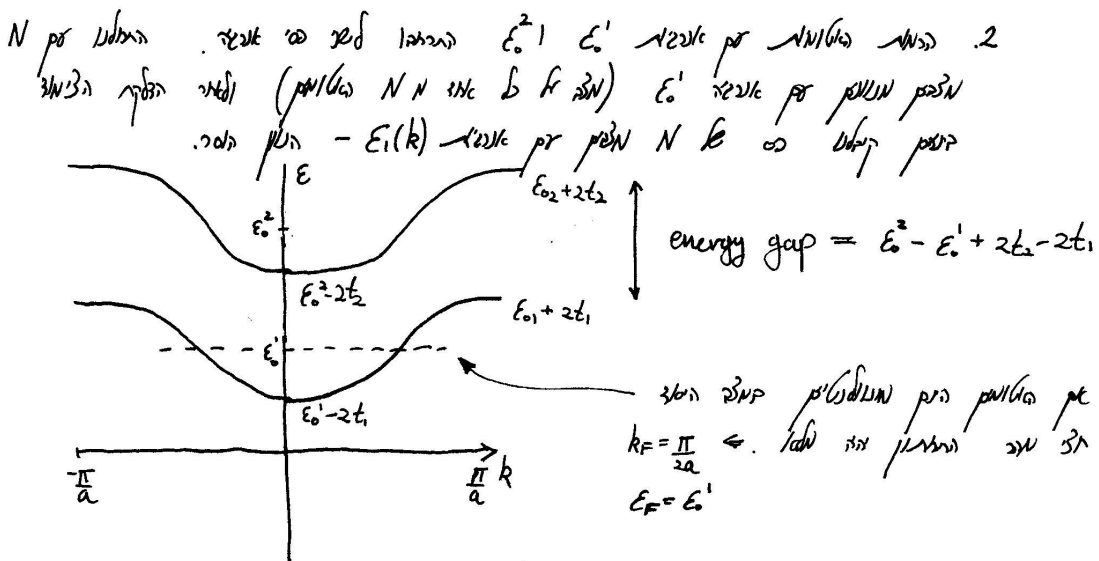 2. הרמות האטומיות עם אנרגיות ε₀¹ ו ε₀² התרחבו לשני פסי אנרגיה. התחלנו עם N
מצבים מנוונים עם אנרגיה ε₀¹ (מצב על כל אחד מ N האטומים) ולאחר הדלקת הצימוד
בינהם קיבלנו פס של N מצבים עם אנרגיות ε₁(k) - הניוון הוסר.
ε
ε₀₂+2t₂
ε₀²
energy gap = ε₀² - ε₀¹ + 2t₂ - 2t₁
ε₀²-2t₂
ε₀₁+2t₁
ε₀¹
ε₀¹-2t₁
אם האטומים הינם מונוולנטיים במצב היסוד
חצי מהפס התחתון יהיה מלא. ⇐ k_F = π/2a
ε_F = ε₀¹
-π/a
π/a k